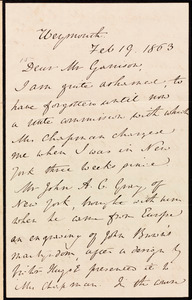 Weymouth
Feb 19. 1863
Dear Mr Garrison,
I am quite ashamed, to
have forgotten until now
a little commission with which
Mrs. Chapman charged
me when I was in New
York three weeks since
Mr John A. C. Gray of
New York, brought with him
when he came from Europe
an engraving of John Brown's
martyrdom, after a design by
Victor Hugo & presented it to
Mrs Chapman. In the course